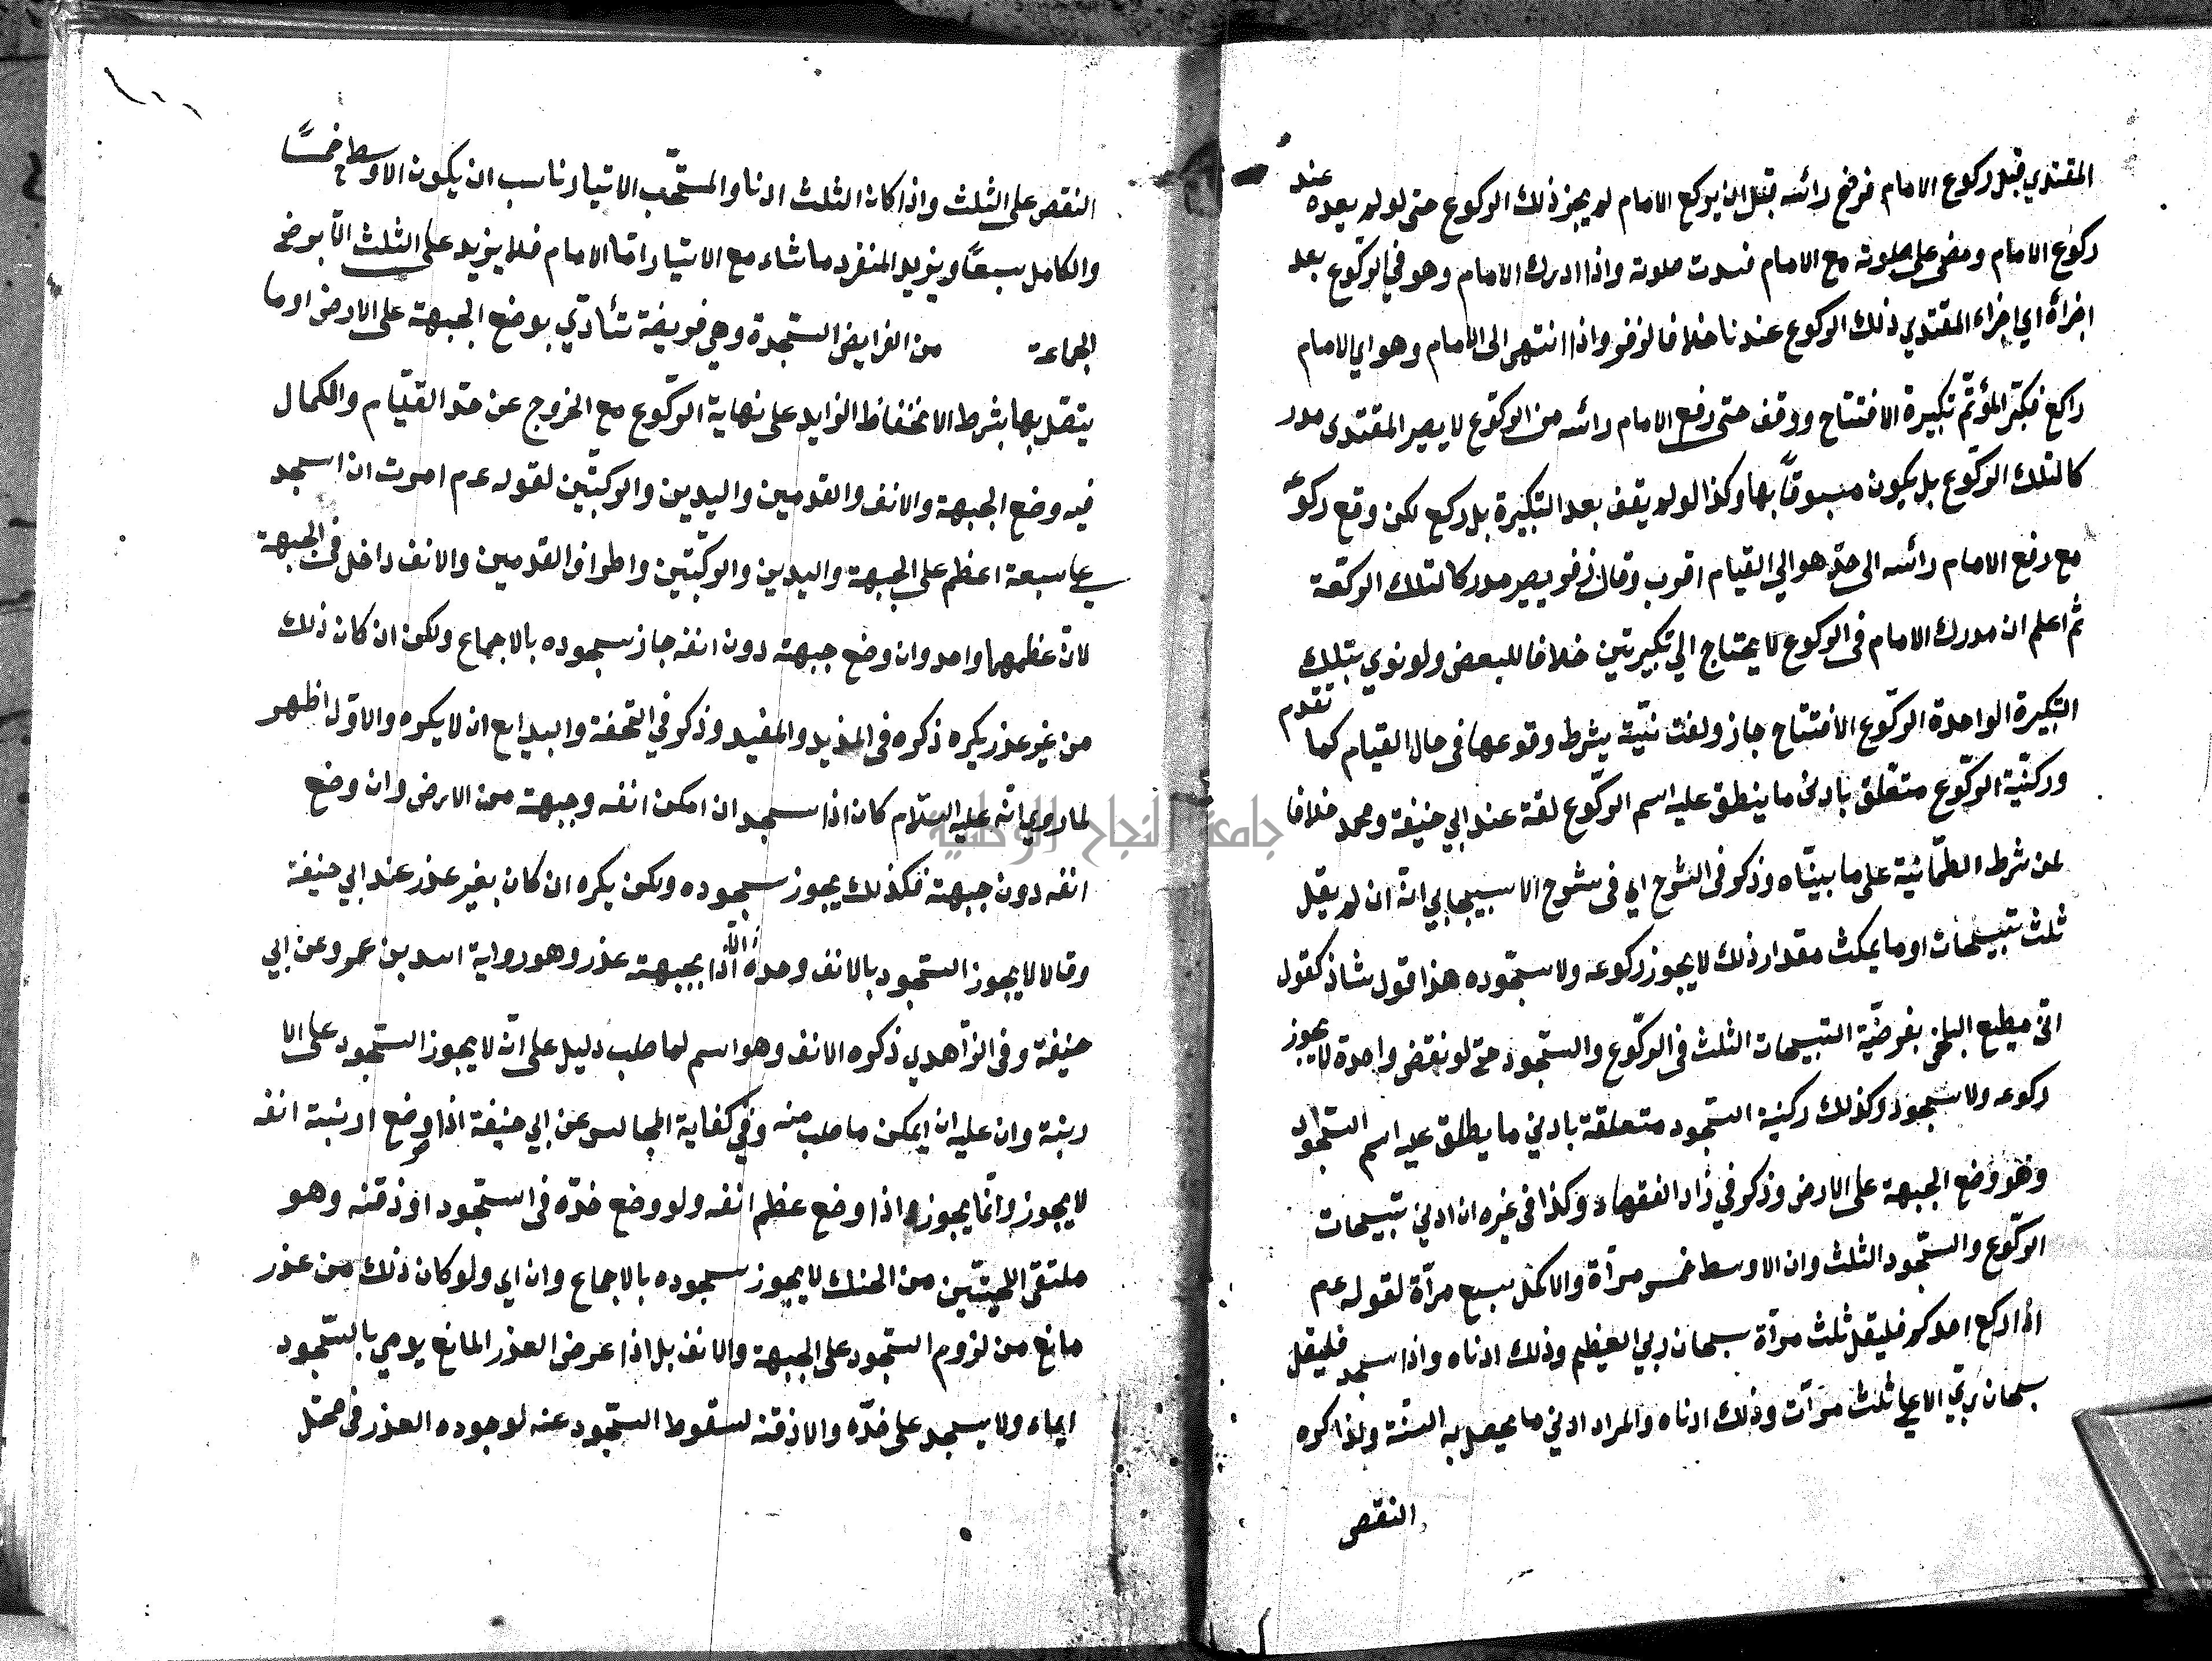 المقتدي قبل ركوع الامام فرفع رائسه قبل ان يركع الامام لم يجز ذلك الركوع حتى لو لم يعده عند
ركوع الامام ومضى على صلوته مع الامام فسدت صلوته واذا ادرك الامام وهو في الركوع بعد
اجزأه اي اجزاء المقتدي ذلك الركوع عندنا خلافا لزفر واذا انتهى الى الامام وهو اي الامام
راكع فكبّر المؤتمّ تكبيرة الافتتاح ووقف حتى رفع الامام رائسه من الركوع لا يصير المقتدى مدر
كا لتلك الركوع بل يكون مسبوقًا بها وكذا لو لم يقف بعد التكبيرة بل ركع لكن وقع ركوعه
مع رفع الامام رائسه الى حدّ هو الي القيام اقرب وقال زفر يصير مدركا لتلك الركعة
ثم اعلم ان مدرك الامام في الركوع لا يحتاج الي تكبيرتين خلافا للبعض ولو نوي بتلك
التكبيرة الواحدة الركوع الافتتاح جاز ولغت نيّته بشرط وقوعها في حال القيام كما تقدم
وركنيّة الركوع متعلّق بادنى ما ينطق عليه اسم الركوع لغة عند ابي حنيفة ومحمد خلافا
لمن شرط الطمّانية على ما بيّناه وذكر في الشرح اي في شرح الاسبيجابي انه ان لم يقل
ثلث تسبيحات او ما يمكث مقدار ذلك لا يجوز ركوعه ولا سجوده هذا قول شاذ كقول
ابي مطيع البلخي بفرضيّة التسبيحات الثلث في الركوع والسجود حتى لو نقض واحدة لا يجوز
ركوعه ولا سجود وكذلك ركنية السجود متعلقة بادني ما يطلق عليه اسم السجود
وهو وضع الجبهة على الارض وذكر في زاد الفقهاء وكذا في غيره ان ادني تسبيحات
الركوع والسجود الثلث وان الاوسط خمس مرآة والاكمل سبع مرآة لقوله عم
اذا ركع احدكم فليقل ثلث مرآة سبحان ربي العظيم وذلك ادناه واذا سجد فليقل
سبحان ربي الاعلي ثلث مرّات وذلك ادناه والمراد ادني ما يحصل به السنّة ولذا كره
النقص
النقص على الثلث واذا كان الثلث ادنا والمستحّب الايتار ناسب ان يكون الاوسط خمسًا
والكامل سبعًا ويزيد المنفرد ما شاء مع الايتار امّا الامام فلا يزيد على الثلث الّا برضى
الجماعة من الفرايض السجدة وهي فريضة تتأدّي بوضع الجبهة على الارض او ما
يتصل بها بشرط الانخفاظ الزايد على نهاية الركوع مع الخروج عن حدّ القيام والكمال
فيه وضع الجبهة والانف والقدمين واليدين والركبتين لقوله عم امرت ان اسجد
علي سبعة اعظم على الجبهة واليدين والركبتين واطراف القدمين والانف داخل في الجبهة
لانّ عظمهما واحد وان وضع جبهته دون انفه جاز سجوده بالاجماع ولكن ان كان ذلك
من غير عذر يكره ذكره في المزيد والمفيد وذكر في التحفة والبدايع ان لا يكره والاوّل اظهر
لما روي انّه عليه السّلام كان اذا سجد ان امكن انفه وجبهته من الارض وان وضع
انفه دون جبهته فكذلك يجوز سجوده ولكن يكره ان كان بغير عذر عند ابي حنيفة
وقالا لا يجوز السجود بالانف وحدة الّا اذا بجبهته عذر وهو رواية اسد بن عمر وعن ابي
حنيفة وفي الزّاهدي ذكره الانف وهو اسم لما صلب دليل على انّه لا يجوز السجود على الا
رنبة وان عليه ان يمكن ما صلب منه وفي كفاية المجالس عن ابي حنيفة اذا وضع ارنبة انفه
لا يجوز وانّما يجوز اذا وضع عظم انفه ولو وضع خدّه في السجود او ذقنه وهو
ملتقى اللحيتّين من الحنك لا يجوز سجوده بالاجماع وان اي ولو كان ذلك من عذر
مانع من لزوم السجود على الجبهة والانف بل اذا عرض العذر المانع يومي بالسجود
ايماء ولا يسجد على خدّه والاذقنه لسقوط السجود عنه لوجوده العذر في محلّ
جامعة النجاح الوطنية